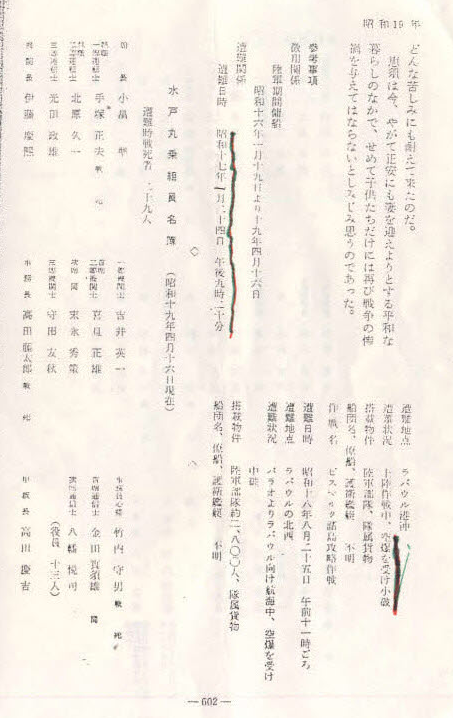 昭和19年
どんな苦しみにも耐えて来たのだ。
恵須は今、やがて正安にも妻を迎えようとする平和な
暮らしのなかで、せめて子供たちだけには再び戦争の惨
禍を与えてはならないとしみじみ思うのであった。
参考事項
徴用関係
陸軍期間傭船
昭和十六年一月十九日より十九年四月十六日
遭難関係
遭難日時 昭和十七年一月二十四日 午後九時二十分
遭難地点 ラバウル港沖
遭難状況 上陸作戦中、空爆を受け小破
搭載物件 陸軍部隊、隊属貨物
船団名、僚船、護衛艦艇 不明
作戦名 ビスマルク諸島攻略作戦
遭難日時 昭和十八年八月二十五日 午前十一時ごろ
遭難地点 ラバウルの北西
遭難状況 パラオよりラバウル向け航海中、空爆を受け
中破
搭載物件 陸軍部隊約二、八〇〇人、隊属貨物
船団名、僚船、護衛艦艇 不明
水戸丸乗組員名簿 (昭和十九年四月十六日現在)
遭難時戦死者 二十九人
船長 小畠
一等運転士 手塚正夫 戦死
北原久一
三等運転士 光田政雄
事務長 伊藤慶熙
一等機関士 吉井英一
二等機関士 喜見正雄
末永秀策
三等機関士 守田友秋
事務長 高田藤太郎 戦死
竹内守男 戦死
首席通信士 金田賀須雄
次席通信士 八幡悦司
(役員 十三人)
甲板長 高田慶吉
―602―